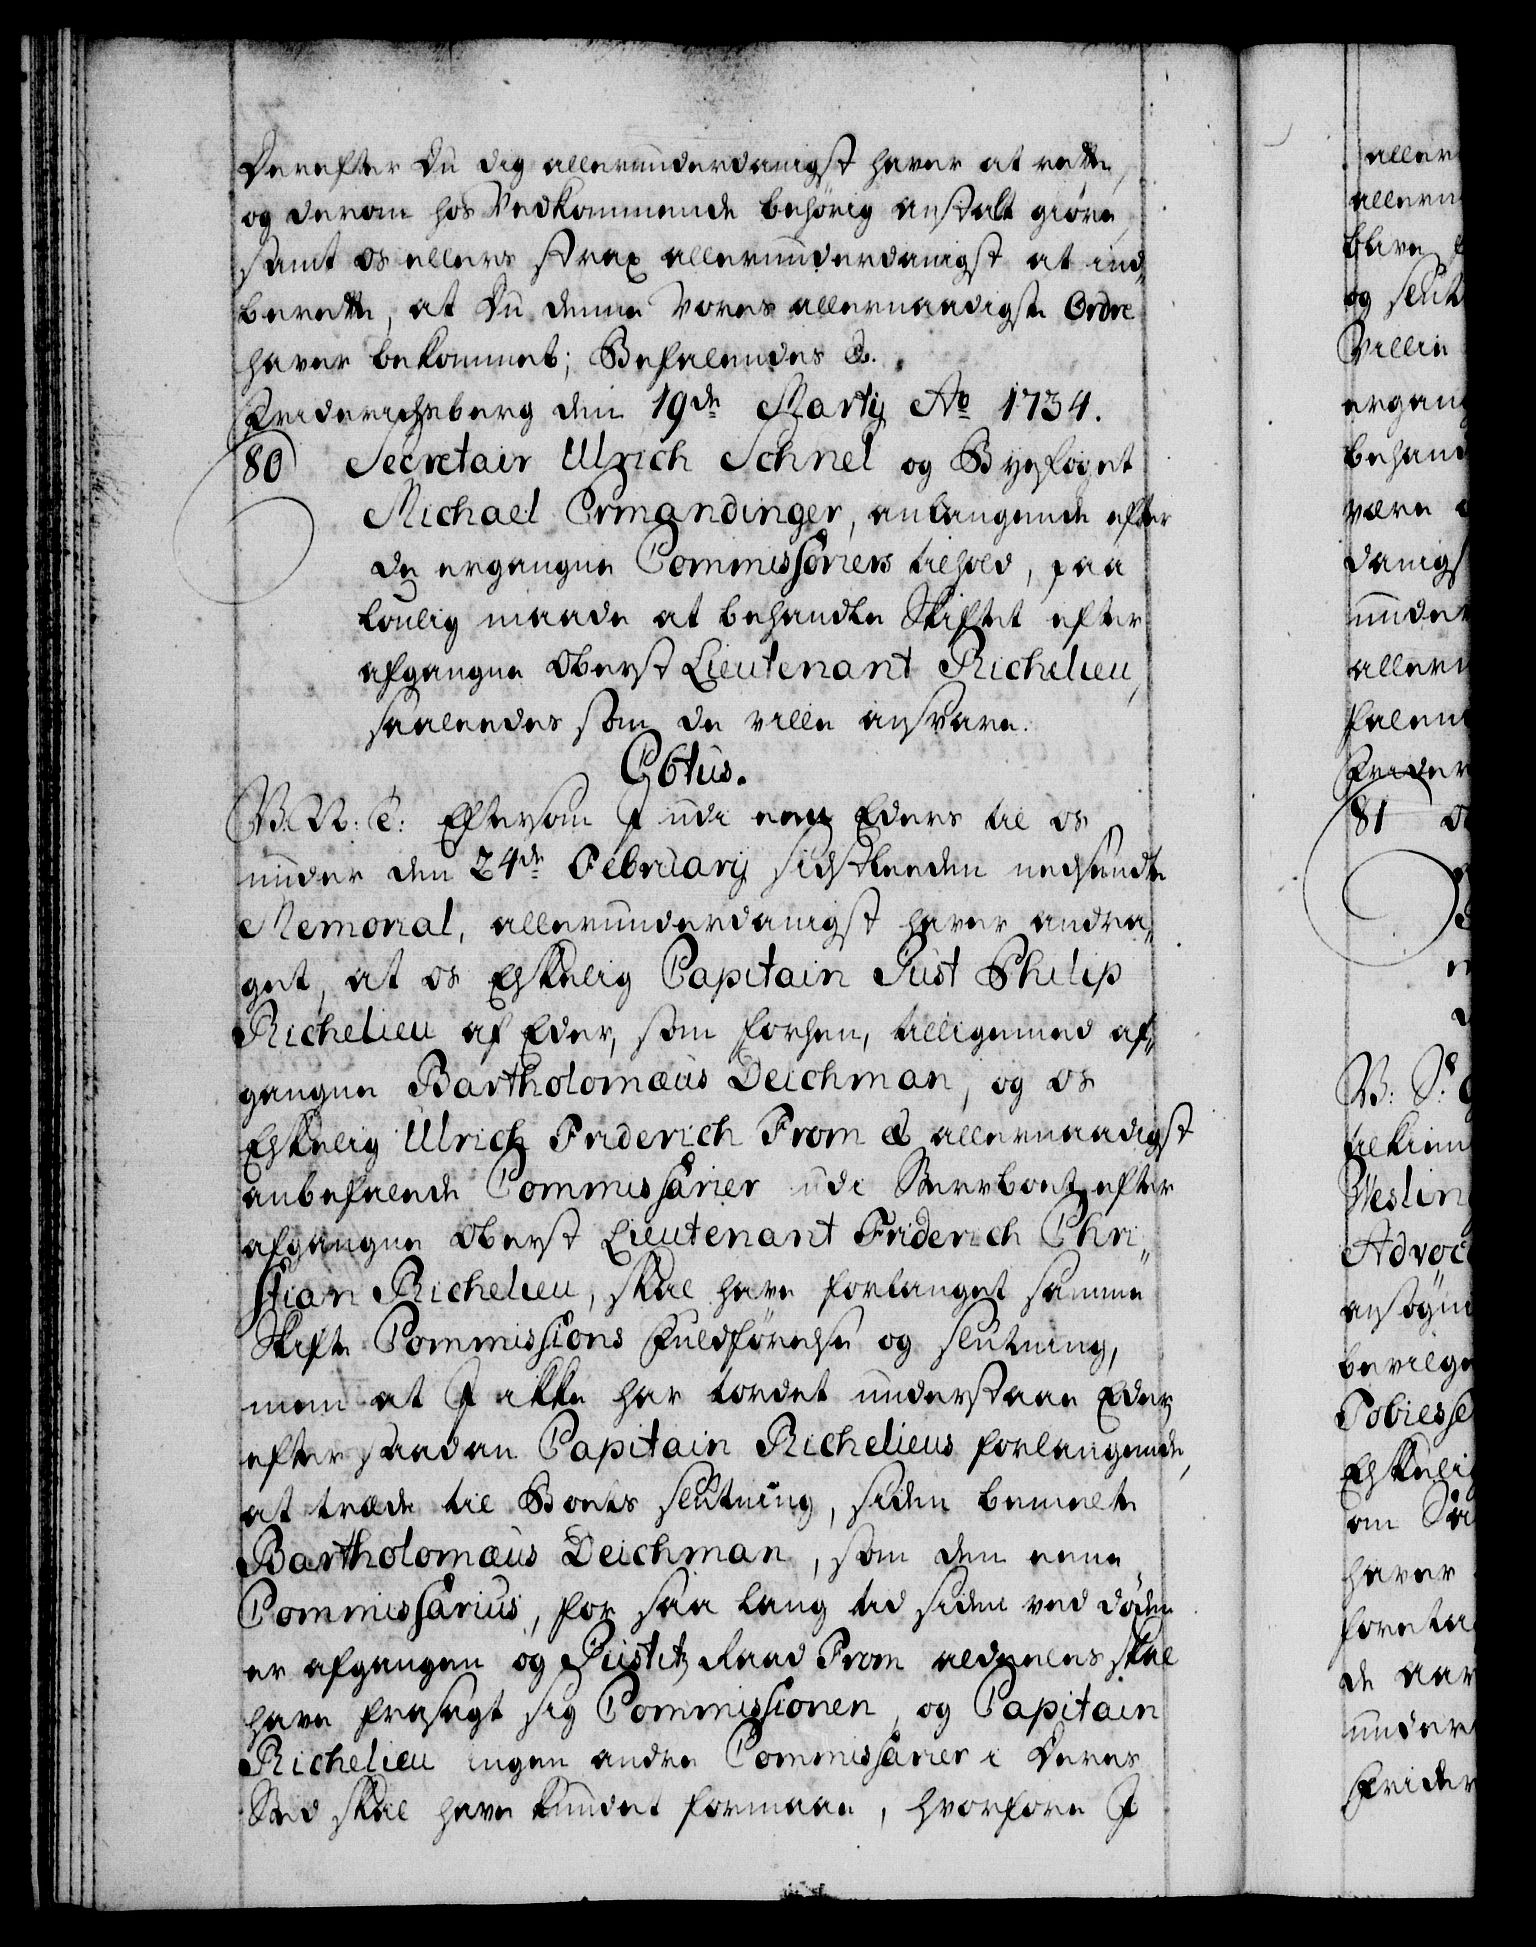 Derefter Du dig allerunderdanigst haver at rette,
og derom hos Vedkommende behörig anstalt giöre,
samt os ellers strax allerunderdanigst at ind-
berette, at Du denne Vores allernaadigste Ordre
haver bekommet; Befalendes &.
Friderichsberg den 19de Martij Ao 1734.
80 Secretair Ulrich Schnel og Byefoget
Michael Ermandinger, anlangende efter
de ergangne Commissoriers tilhold, paa
lovlig maade at behandle Skiftet efter
afgangne Oberst Lieutenant Richelieu,
saaledes som de ville ansvare.
C6tus.
V. G: T: Eftersom I udi een Eders til os
under den 24de February sidstleeden nedsendte
Memorial, allerunderdanigst haver andra-
get, at os Elskelig Capitain Just Philip
Richelieu af Eder, som forhen, tilligemed af-
gangne Bartholomæus Deichman, og os
Elskelig Ulrich Friderich From & allernaadigst
anbefalede Commissarier udi Sterboet efter
afgangne Oberst Lieutenant Friderich Chri-
stian Richelieu, skal have forlanget samme
Skifte Commissions Fuldförelse og slutning,
men at I ikke har tordet understaae Eder,
efter saadan Capitain Richelieus forlangende,
at træde til Boets slutning, siden bemelte
Bartholomæus Deichman, som den eene
Commissarius, for saa lang tid siden ved döden
er afgangen og Justitz Raad From aldeeles skal
have frasagt sig Commissionen, og Capitain
Richelieu ingen andre Commissarier i Deres
Sted skal have kundet formaae, hvorfore I
81